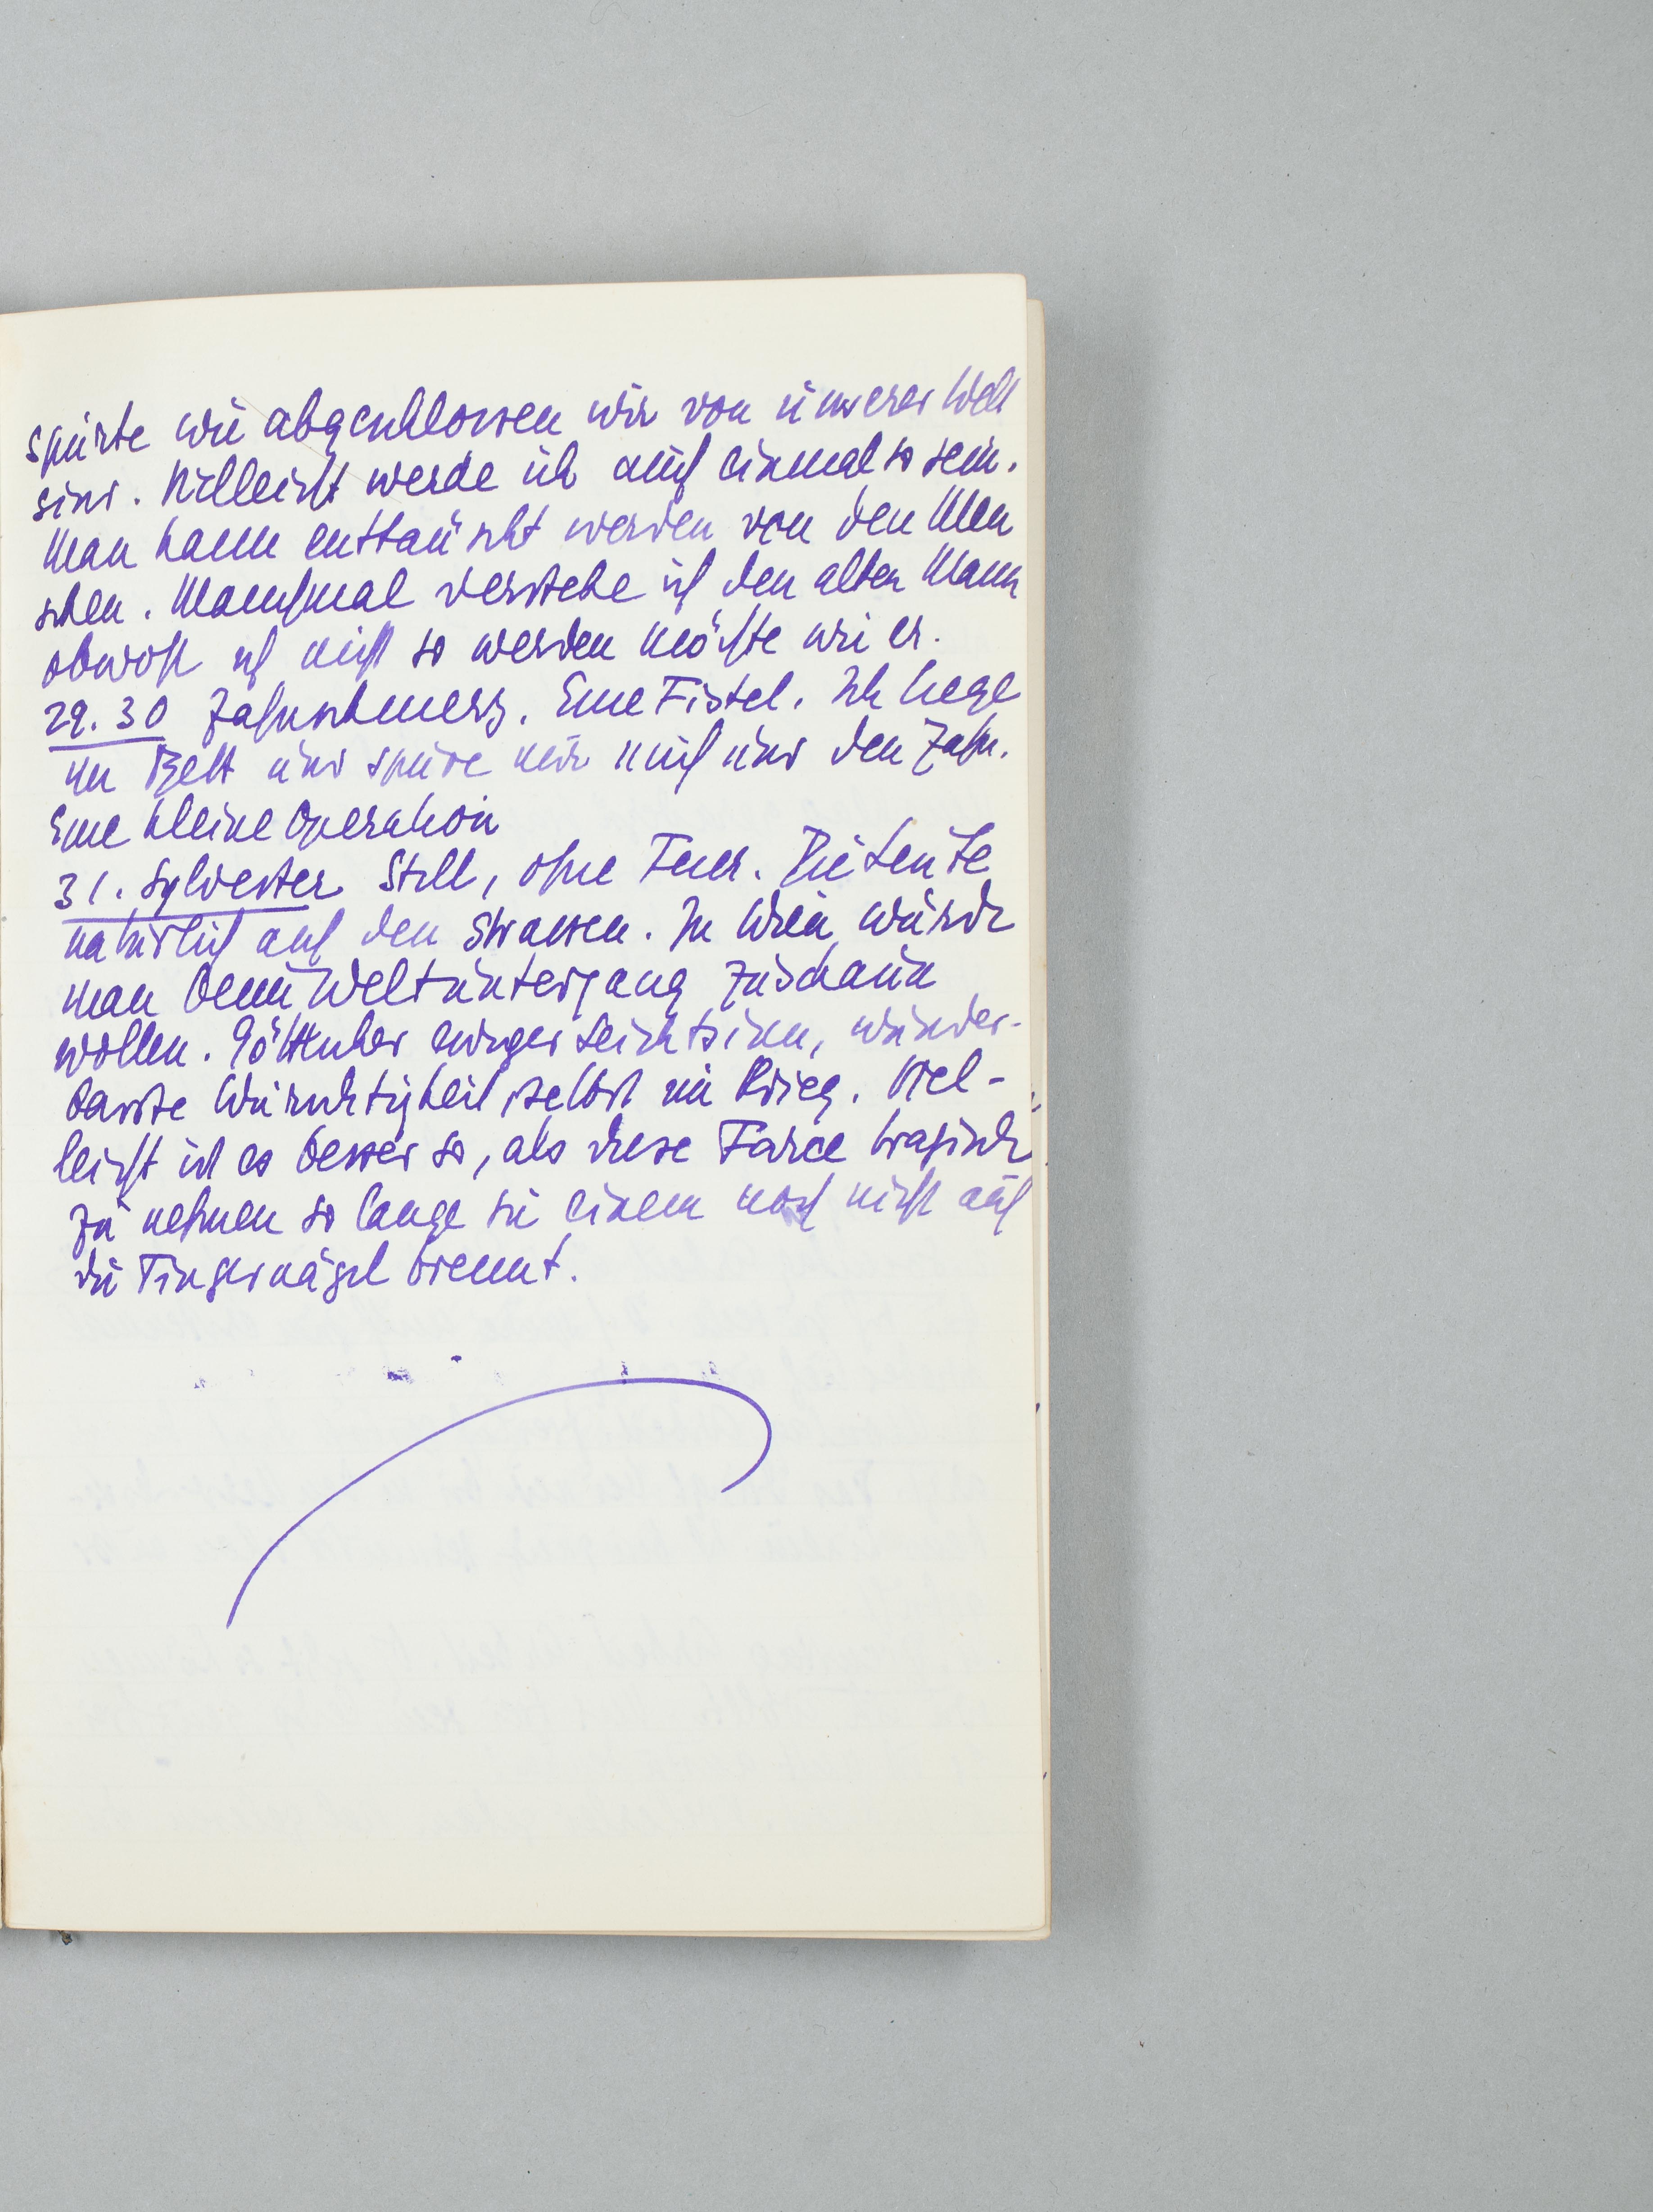 spürte wie abgeschlossen wir von unserer Welt
sind. Vielleicht werde ich auch einmal so sein.
Man kann enttäuscht werden von den Men
schen. Manchmal verstehe ich den alten Mann
obwohl ich nicht so werden möchte wie er.
29. 30 Zahnschmerz. Eine Fistel. Ich liege
im Bett und spüre nur mich und den Zahn.
Eine kleine Operation
31. Sylvester Still, ohne Feuer. Die Leute
natürlich auf den Strassen. In Wien würde
man beim Weltuntergang zuschaun
wollen. Göttlicher ewiger Leichtsinn, wunder-
barste Wurschtigkeit, selbst im Krieg. Viel-
leicht ist es besser so, als diese Farce tragisch
zu nehmen so lange sie einem noch nicht auf
die Fingernägel brennt.